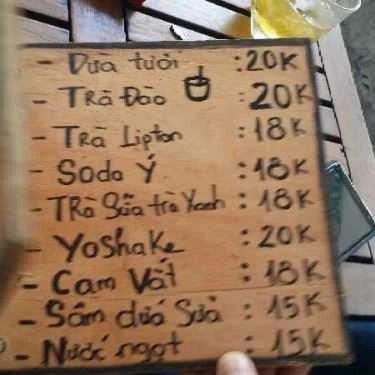 - Dừa tươi : 20K
- Trà Đào : 20K
- Trà Lipton : 18K
- Soda Ý : 18K
- Trà Sữa trà Xanh : 18K
- Yoshake : 20K
- Cam Vắt : 18K
- Sâm dứa Sữa : 15K
- Nước ngọt : 15K